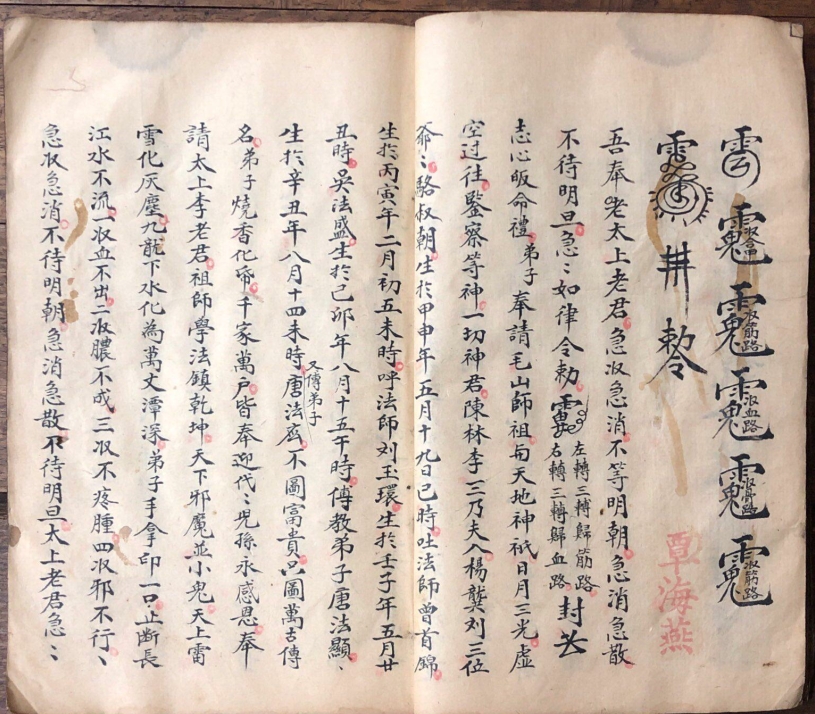 吾奉老太上老君急收急消不等明朝急消急散
不待明旦急〻如律令勅
左轉三轉歸筋路
右轉三轉歸血路
封
志心皈命禮弟子奉請毛山師祖与天地神祇日月三光虛
空过往鑒察等神一切神君陳林李三乃夫人楊龔刘三位
爺〻駱叔朝生於甲申年五月十九日巳時吐法師曾首錦
生於丙寅年二月初五未時呼法師刘玉環生於壬子年五月廿
丑時吳法盛生於己卯年八月十五午時傅教弟子唐法顯、
又傳弟子
生於辛丑年八月十四未時唐法 不圖富貴只圖萬古傳
名弟子燒香化帋千家萬戶皆奉迎代〻児孫永感恩奉
請太上李老君祖師學法鎮乾坤天下邪魔並小鬼天上雷
雪化灰塵九龍下水化為萬丈潭深弟子手拿印一口止断長
江水不流一收血不出二收膿不成三收不疼腫四收邪不行〻
急收急消不待明朝急消急散不待明旦太上老君急〻
收血路
收骨路
收筋路
井勅令
覃海燕